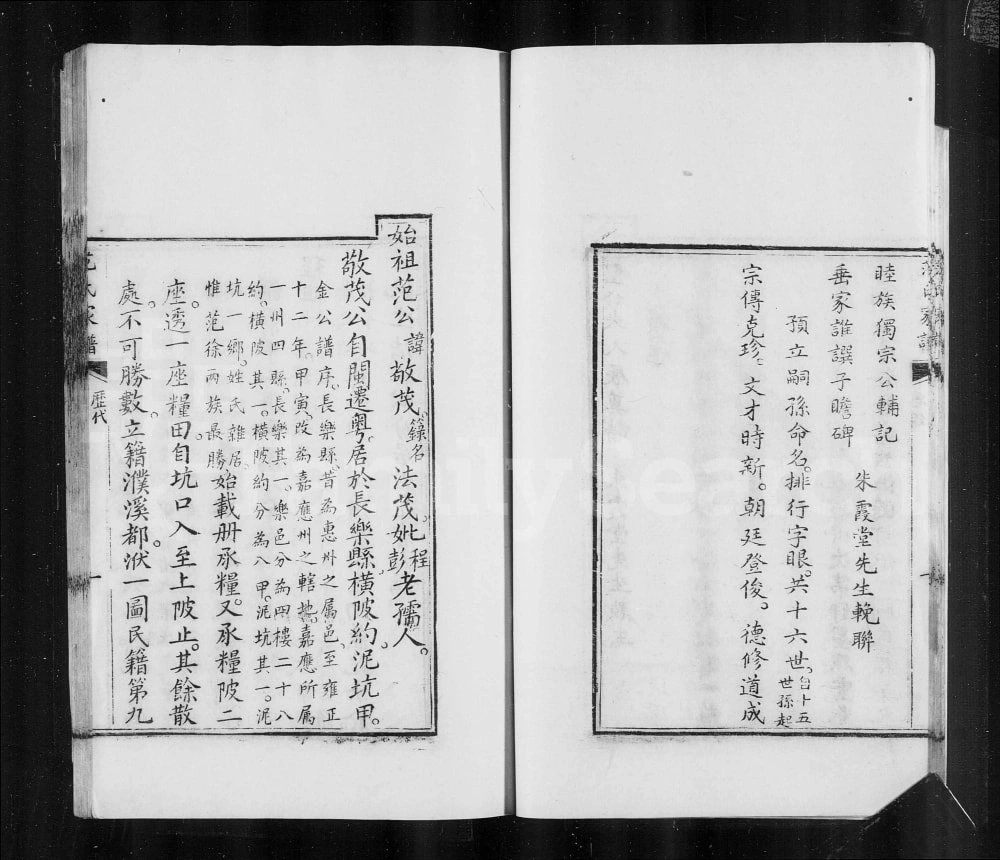 睦族獨宗公輔記
朱霞堂先生輓聯
垂家誰譔子瞻碑
預立嗣孫命名。排行字眼。共十六世。自十五世孫起
宗傳克珍々文才時新。朝廷登俊。德修道成
始祖范公諱敬茂籙名法茂。妣程彭老孺人。
敬茂公自閩遷粵。居於長樂縣橫陂約。泥坑甲。
金公譜序。長樂縣。昔為惠州之屬邑。至雍正
十二年。甲寅。改為嘉應州之轄地。嘉應所屬
一州四縣。長樂其一。樂邑分為四樓二十八
約。橫陂其一。橫陂約分為八甲。泥坑其一。泥
坑一鄉。姓氏雜居。
惟范徐兩族最勝始載册承糧。又承糧陂二
座。透一座糧田。自坑口入至上陂止。其餘散
處。不可勝數。立籍濮溪都。洑一圖民籍第九
氏家譜
歷代
一